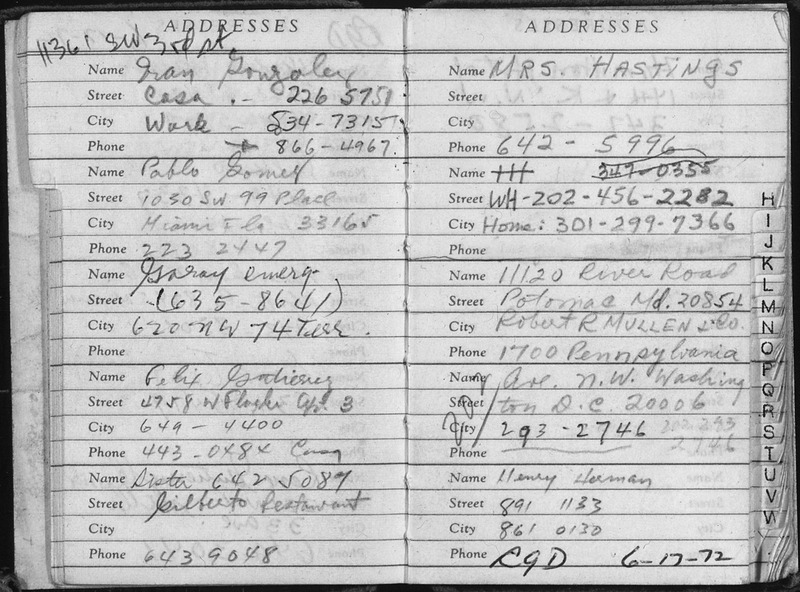 ADDRESSES
1136 SW 3rd St.
Name Ivan Gonzalez
Street Casa .- 226 5751
City Work - 534-7315
Phone 866-4967
Name Pablo Gomez
Street 1030 SW 99 Place
City Miami Fla 33165
Phone 223 2447
Name Garay emerg-
Street (635-8641)
City 620 NW 74 Terr.
Phone
Name Felix Gutierrez
Street 4758 W Flagler Apt. 3
City 649-4400
Phone 443-0484 Casa
Name Sister 642 5087
Street Gilberto Restaurant
City
Phone 643 9048
ADDRESSES
Name MRS. HASTINGS
Street
City
Phone 642-5996
Name HH 347-0355
Street WH-202-456-2282
City Home: 301-299-7366
Phone
Name 11120 River Road
Street Potomac Md. 20854
City Robert R MULLEN & Co.
Phone 1700 Pennsylvania
Name Ave. N.W. Washing
Street ton D.C. 20006
City 293-2746 202 293
Phone 2746
Name Henry Herman
Street 891 1133
City 861 0130
Phone RGD 6-17-72
H
I
J
K
L
M
N
O
P
Q
R
S
T
U
V
W